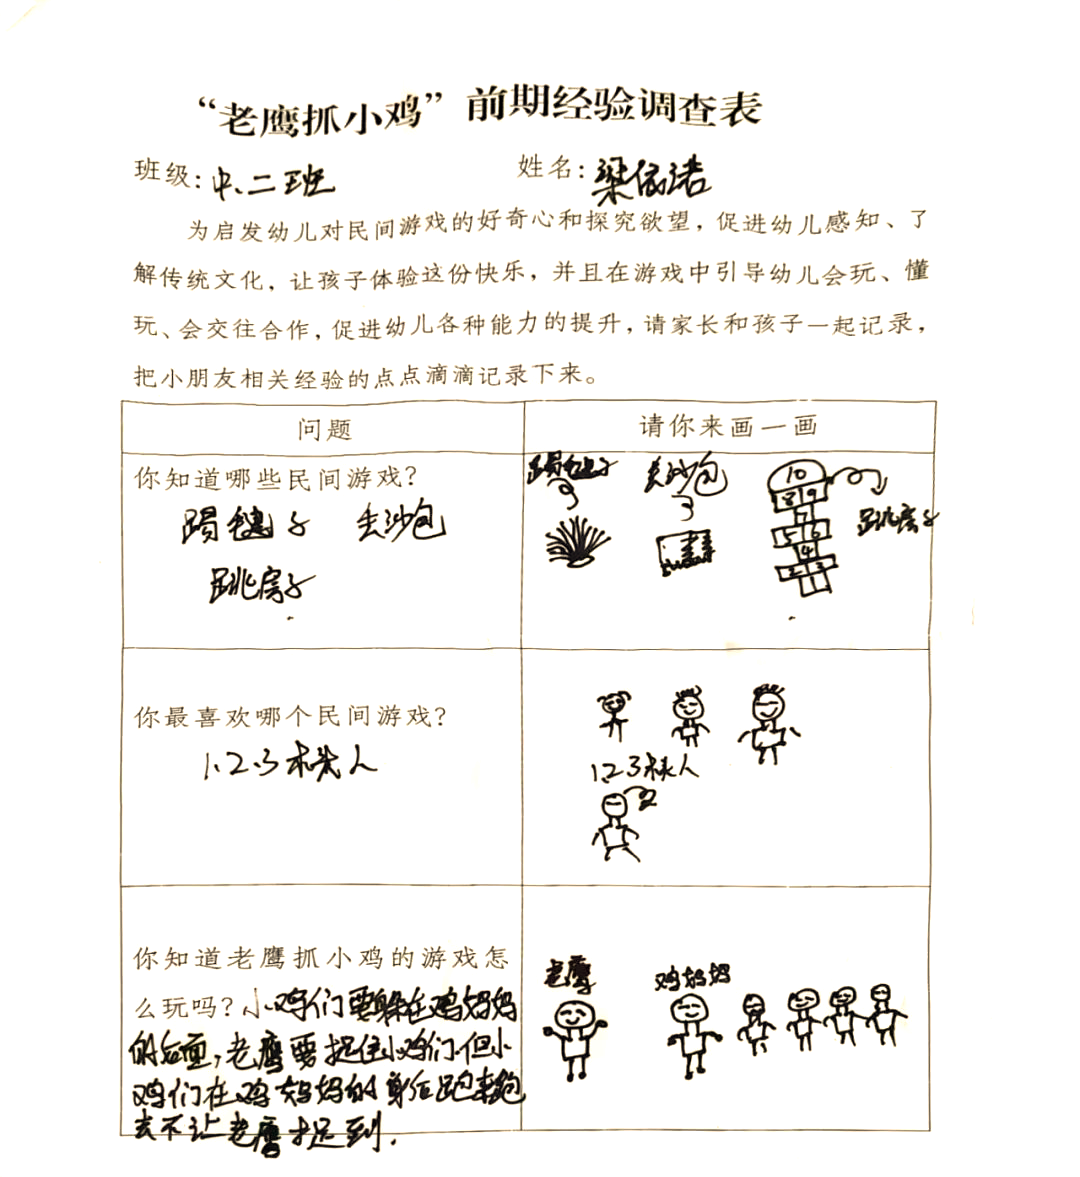 “老鹰抓小鸡”前期经验调查表
班级：中二班 姓名：梁依诺
为启发幼儿对民间游戏的好奇心和探究欲望，促进幼儿感知、了
解传统文化，让孩子体验这份快乐，并且在游戏中引导幼儿会玩、懂
玩、会交往合作，促进幼儿各种能力的提升，请家长和孩子一起记录，
把小朋友相关经验的点点滴滴记录下来。
问题 请你来画一画
你知道哪些民间游戏？
踢毽子 丢沙包
跳房子
踢毽子 丢沙包
跳房子
10
8 9
7
5 6
4
2 3
1
你最喜欢哪个民间游戏？
1.2.3木头人
1.2.3木头人
你知道老鹰抓小鸡的游戏怎
么玩吗？小鸡们要躲在鸡妈妈
的后面，老鹰要捉住小鸡们.但小
鸡们在鸡妈妈的身后跑来跑
去不让老鹰捉到.
老鹰 鸡妈妈